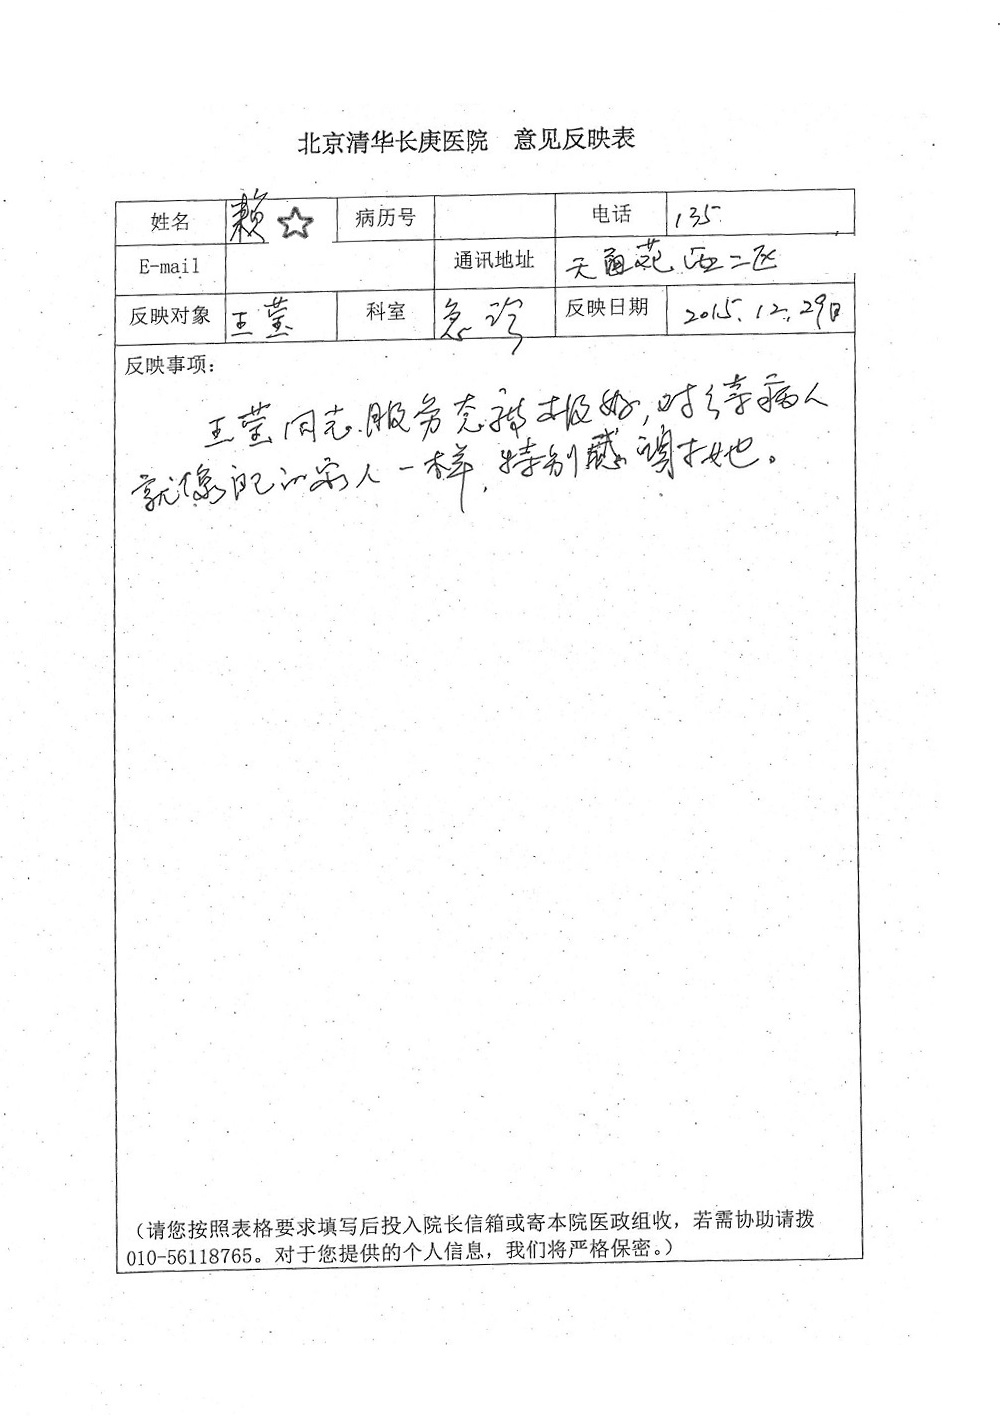 北京清华长庚医院 意见反映表
姓名 赖☆ 病历号 电话 135
E-mail 通讯地址 天通苑西二区
反映对象 王莹 科室 急诊 反映日期 2015.12.29日
反映事项：
王莹同志服务态度极好，对待病人
就像自己的家人一样，特别感谢她。
（请您按照表格要求填写后投入院长信箱或寄本院医政组收，若需协助请拨
010-56118765。对于您提供的个人信息，我们将严格保密。）